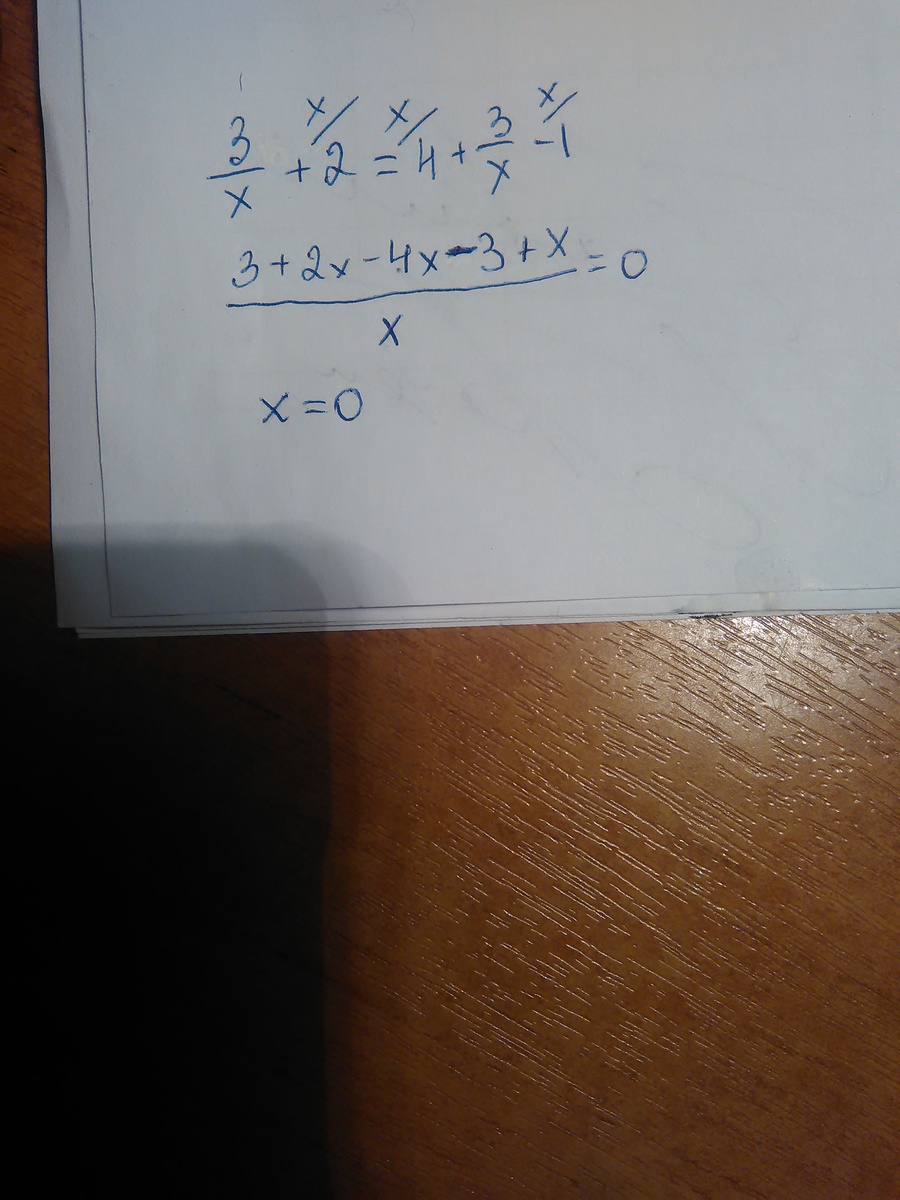 3/x + 2 x/ = 4 x/ + 3/x - 1 x/
(3 + 2x - 4x - 3 + x)/x = 0
x = 0